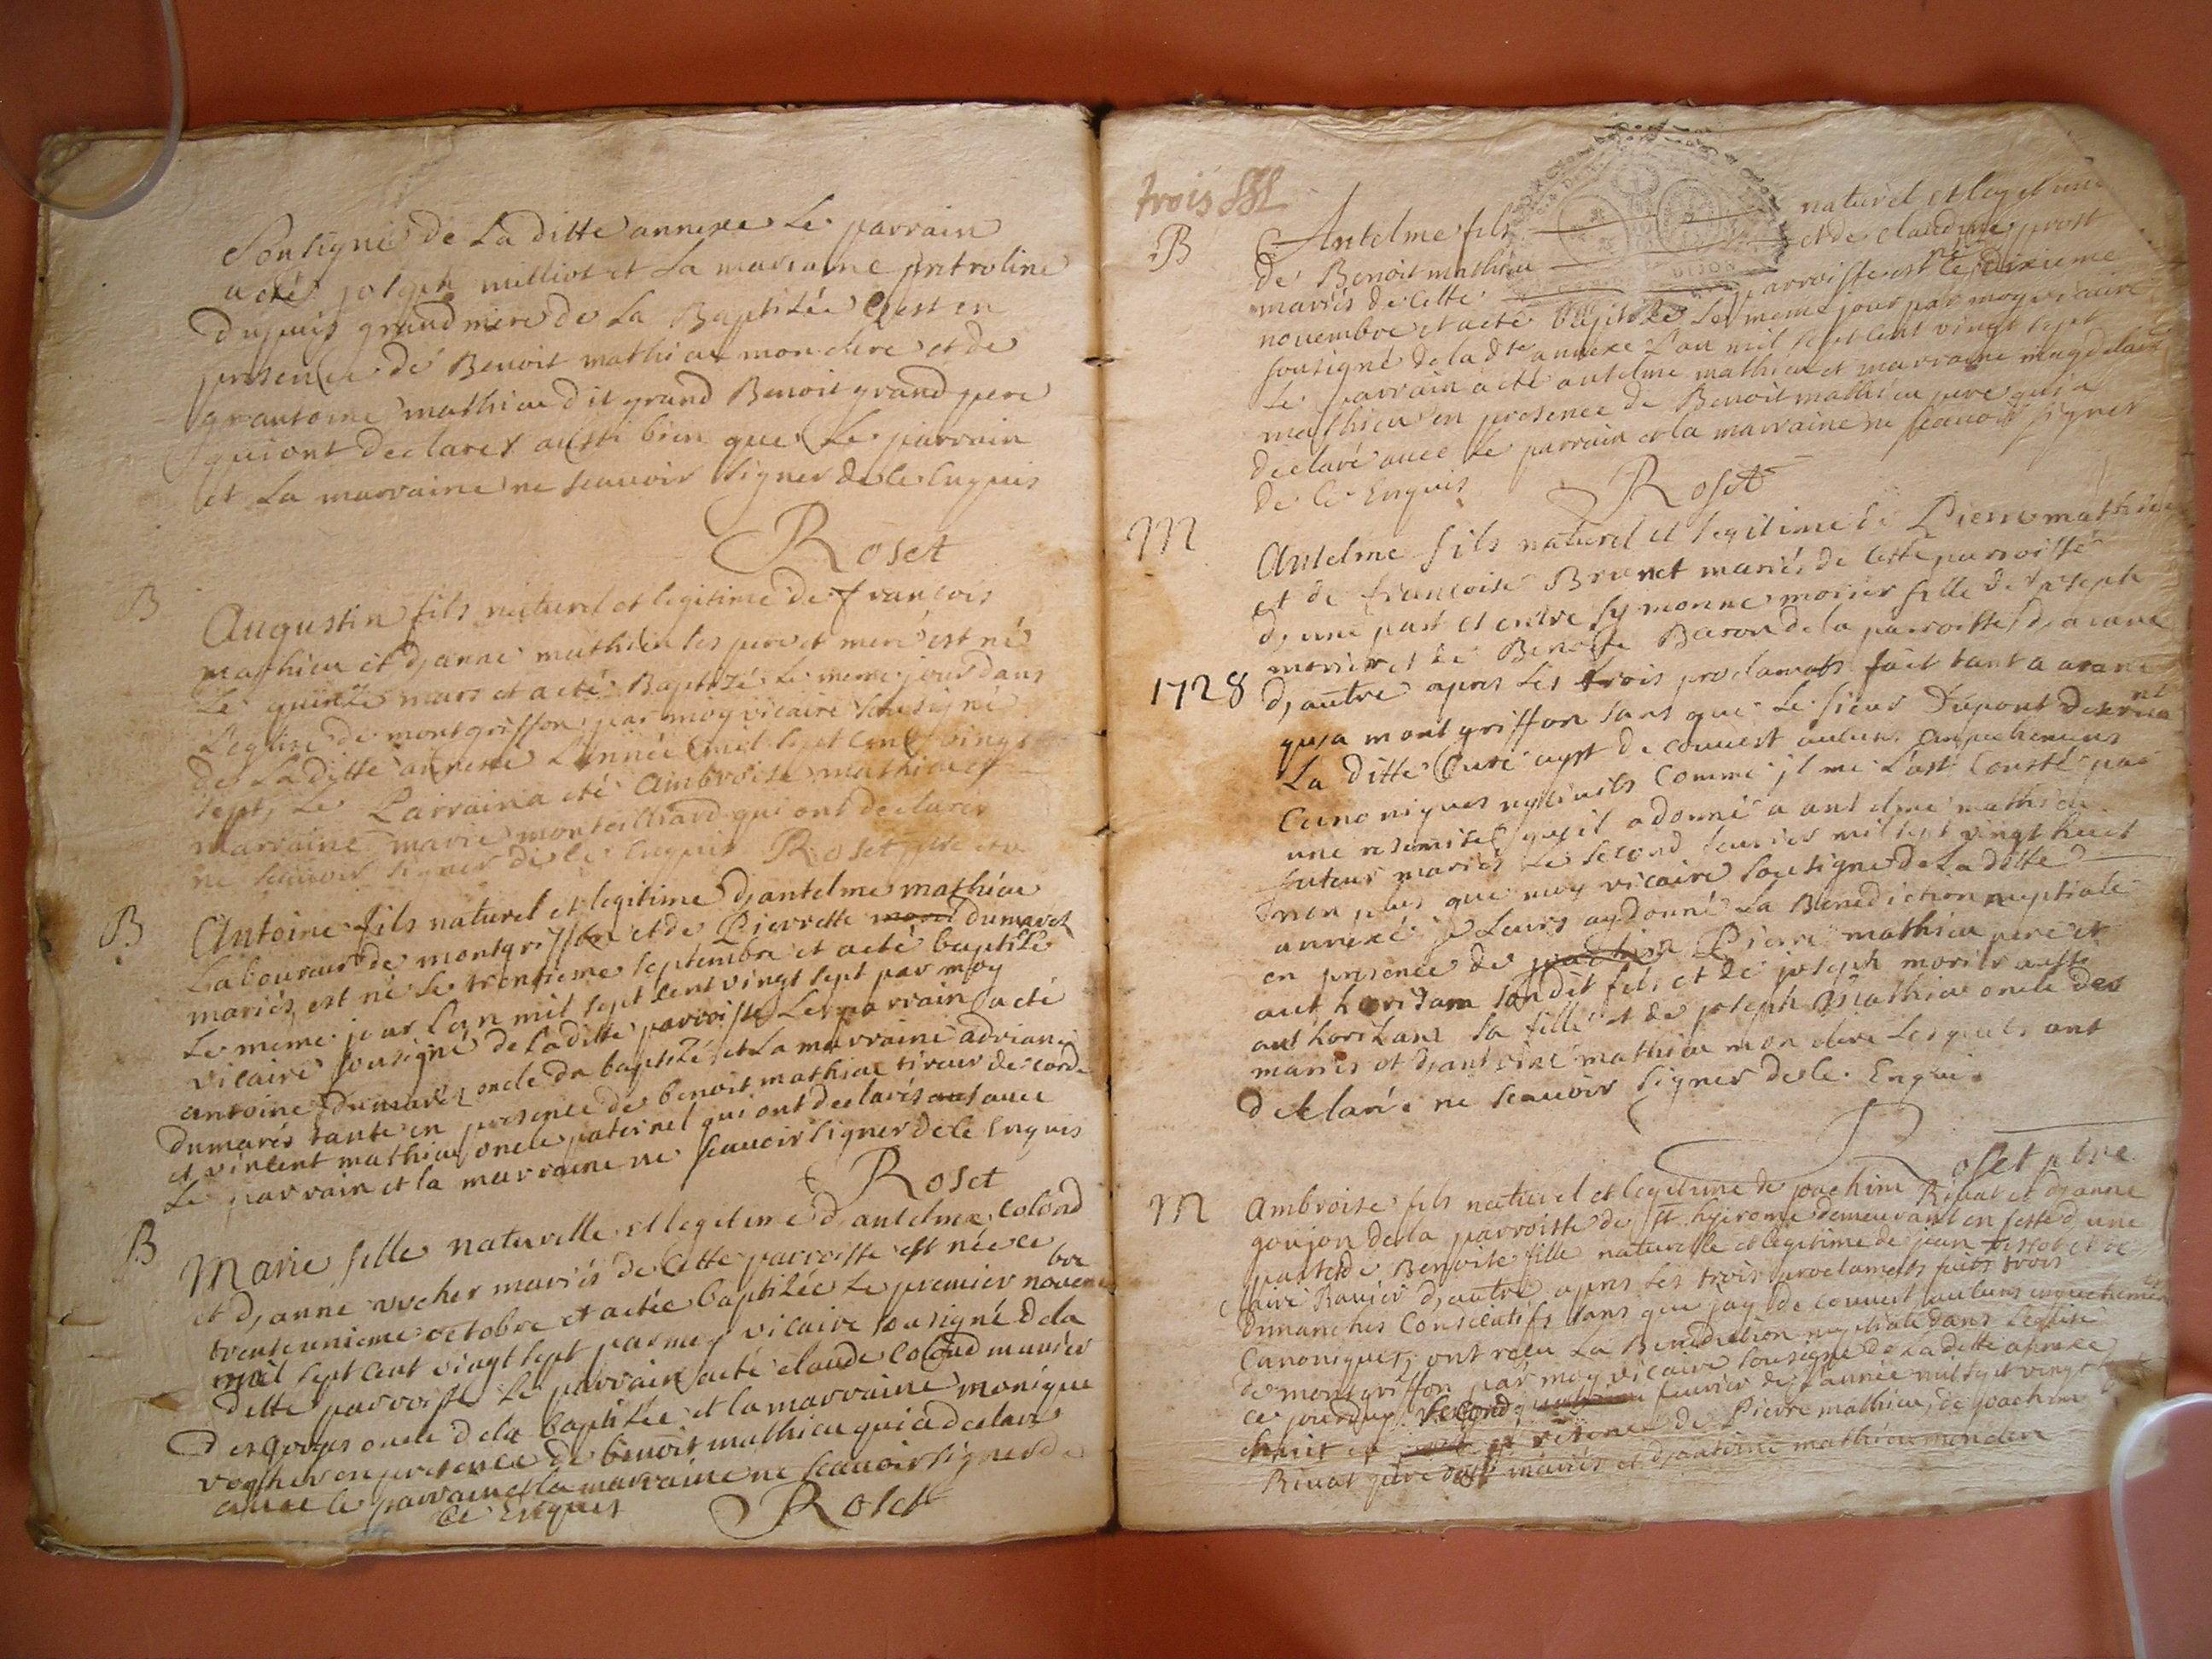 Sousigné de La ditte annexe Le parrain
a été joseph milliot et La maraine petroline
dupuis grand mere de La Baptizée C'est en
presence de Benoit mathieu mon clerc et de
antoine mathieu dit grand Benoit grand pere
qui ont declarez aussi bien que Le parrain
et La marraine ne scauoir signer de ce Enquis
Roset
B
Augustin fils naturel et legitime de françois
mathieu et d,anne mathieu ses pere et mere est né
Le quinze mars et a eté Baptizé Le meme jour dans
L'eglise de montgriffon par moy vicaire sousigné
de La ditte annexe L'année mil sept cent vingt
sept, Le Parrain a eté Ambroise mathieu et
marraine marie montilliard qui ont declarer
ne scauoir signer de ce Enquis Roset
B
Antoine fils naturel et legitime d,antelme mathieu
Laboureur de montgriffon et de Pierrette dumarez
mariés est né Le trentieme septembre et a eté baptisé
Le meme jour L'an mil sept cent vingt sept par moy
vicaire sousigné de Laditte parroisse Le parrain a eté
antoine dumarez oncle du baptizé et La marraine adriane
dumarés tante en presence de benoit mathieu tireur de corde
et vincent mathieu oncle paternel qui ont declarés auec
Le parrain et la marraine ne scauoir signer de ce Enquis
Roset
B
Marie fille naturelle et legitime d,antelme Colond
et d,anne vucher mariés de Cette parroisse est née ce
trente unieme octobre et a etée baptizée Le premier nouembre
mil sept cent vingt sept par moy vicaire sousigné de la
ditte parroisse Le parrain a eté claude Colond munier
oncle de la baptizée et la marraine monique
vucher en presence de benoit mathieu qui a declaré
auec le parrain et la marraine ne scauoir signer de
ce Enquis Roset
trois
B
Antelme fils naturel et legitime
de Benoit mathieu et de claudine prost
mariés de Cette parroisse est né Le dixieme
nouembre et a eté baptizé Le meme jour par moy vicaire
sousigné de la dte annexe L'an mil sept cent vingt sept
Le parrain a eté antelme mathieu et marraine magdelaine
mathieu en presence de Benoit mathieu pere qui a
declaré auec Le parrain et la marraine ne scauoir signer
de ce Enquis Roset
M
Antelme fils naturel et legitime de Pierre mathieu
et de françoise Brunet mariés de Cette parroisse
d,une part et entre symonne morier fille de joseph
morier et de Benoite Baron de la parroisse d,arane
1728
d,autre apres Les trois proclamats fait tant a arane
qu,a montgriffon sans que Le sieur Dupont
La ditte Cure ayt decouuert aucuns empechemens
Canoniques ny ciuils Comme jl me L'ast Consté par
une remise qu'il a donné a antelme mathieu
futeur mariés Le second feurier mil sept vingt huit
non plus que moy vicaire sousigné de La ditte
annexe je Leurs ay donné La Benediction nuptiale
en presence de Pierre mathieu pere et
authorisam son dit fils et de joseph morier aussi
authorisans sa fille et de joseph Mathieu oncle des
mariés et d,antoine mathieu mon clerc Lesquels ont
declarés ne scauoir signer de ce Enquis
Roset pbre
M
Ambroise fils naturel et legitime de joachim Riuat et d,anne
goujon de la parroisse de st hyerome demeurant en d,une
part et de Benoite fille naturelle et legitime de jean tissot et de
Claire Rauier d,autre apres Les trois proclamats faits trois
dimanches Consecutifs sans que j'ay decouuert aulcuns empechemens
Canoniques, ont reçu La Benediction nuptiale dans L'eglise
de montgriffon par moy vicaire sousigné de La ditte annexe
ce jourduy second feurier de l'année mil sept vingt
et huit en presence de Pierre mathieu, de joachim
Riuat pere mariés et d,antoine mathieu mon clerc